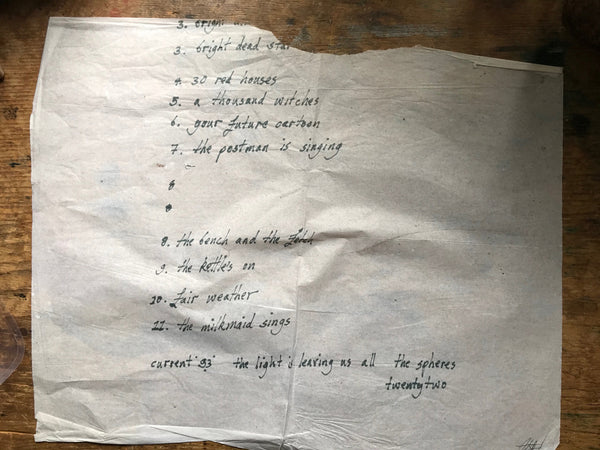 3. bright
3. bright dead sta
4. 30 red houses
5. a thousand witches
6. your future cartoon
7. the postman is singing
8
8
8. the bench and the fetch
9. the kettle's on
10. fair weather
11. the milkmaid sings
current '93' the light is leaving us all the spheres
twentytwo